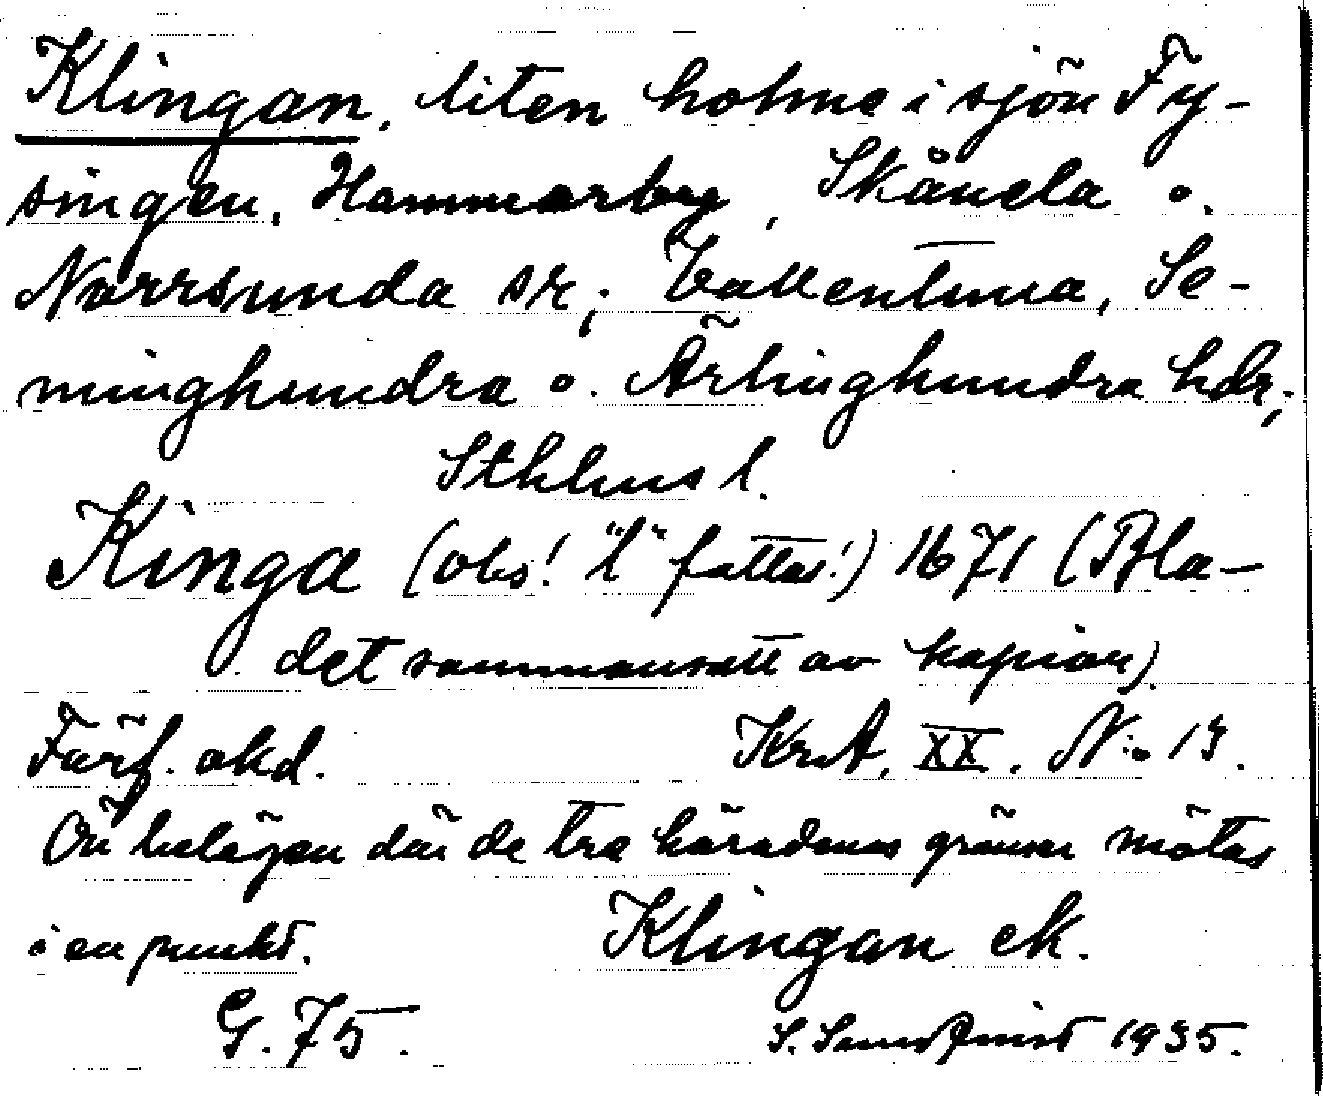 Klingan, liten holme i sjön Fy-
singen, Hammarby, Skånela o.
Norrsunda sr; Vallentuna, Se-
minghundra o. Ärlinghundra hdr;
Sthlms l.
Kinga (obs! "l" fattas!) 1671 (Bla-
det sammansatt av kopior)
Förf. okd. KrA, XX. N:o 13.
Ön belägen där de tre häradenas gränser mötas
i en punkt. Klingan ek.
G. 75. S. Sundqvist 1935.